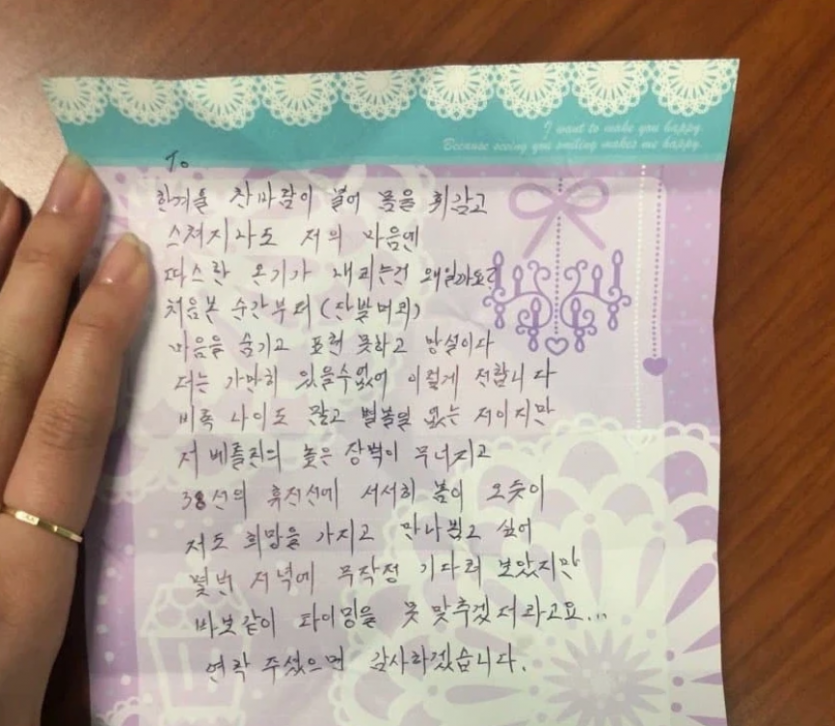 I want to make you happy.
Because seeing you smiling makes me happy.
To
한겨울 찬바람이 불어 몸을 휘감고
스쳐지나도 저의 마음엔
따스한 온기가 재리는건 왜일까요?
처음본 순간부터 (단발머리)
마음을 숨기고 표현 못하고 망설이다
더는 가만히 있을수없어 이렇게 전합니다
비록 나이도 많고 별볼일 없는 저이지만
저 베를린의 높은 장벽이 무너지고
38선의 휴전선에 서서히 봄이 오듯이
저도 희망을 가지고 만나뵙고 싶어
몇번 저녁에 무작정 기다려 보았지만
바보같이 타이밍을 못 맞추겠더라고요...
연락 주셨으면 감사하겠습니다.